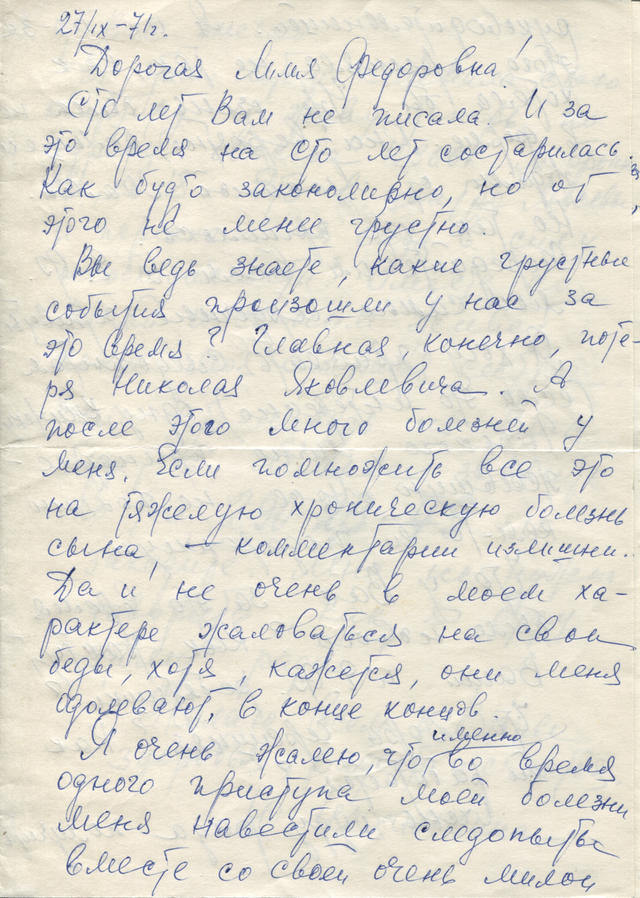 27/IX-71г.
Дорогая Лилия Федоровна!
Сто лет Вам не писала. И за
это время на сто лет состарилась.
Как будто закономерно, но от
этого не менее грустно.
Вы ведь знаете, какие грустные
события произошли у нас за
это время? Главная, конечно, поте-
ря Николая Яковлевича. А
после этого много болезней у
меня. Если помножить все это
на тяжелую хроническую болезнь
сына, – комментарии излишни.
Да и не очень в моем ха-
рактере жаловаться на свои
беды, хотя, кажется, они меня
одолевают, в конце концов.
Я очень жалею, что именно во время
одного приступа моей болезни
меня навестили следопыты
вместе со своей очень милой